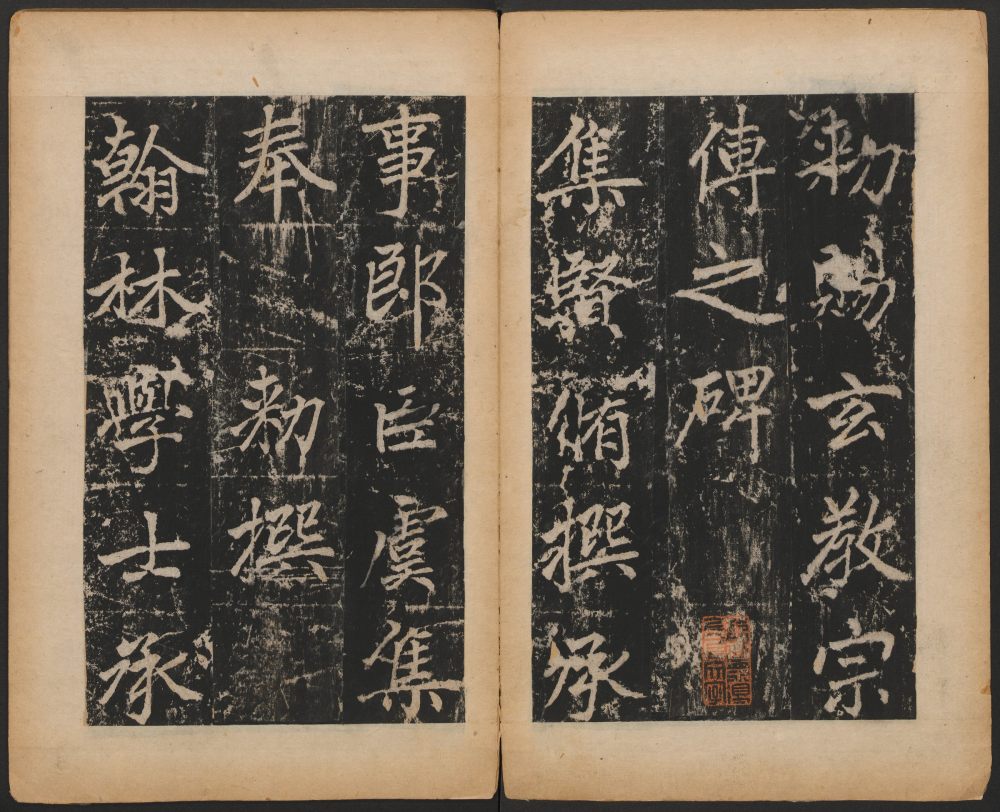 勑賜玄教宗
傳之碑
集賢脩撰承
事郎臣虞集
奉勑撰
翰林學士承